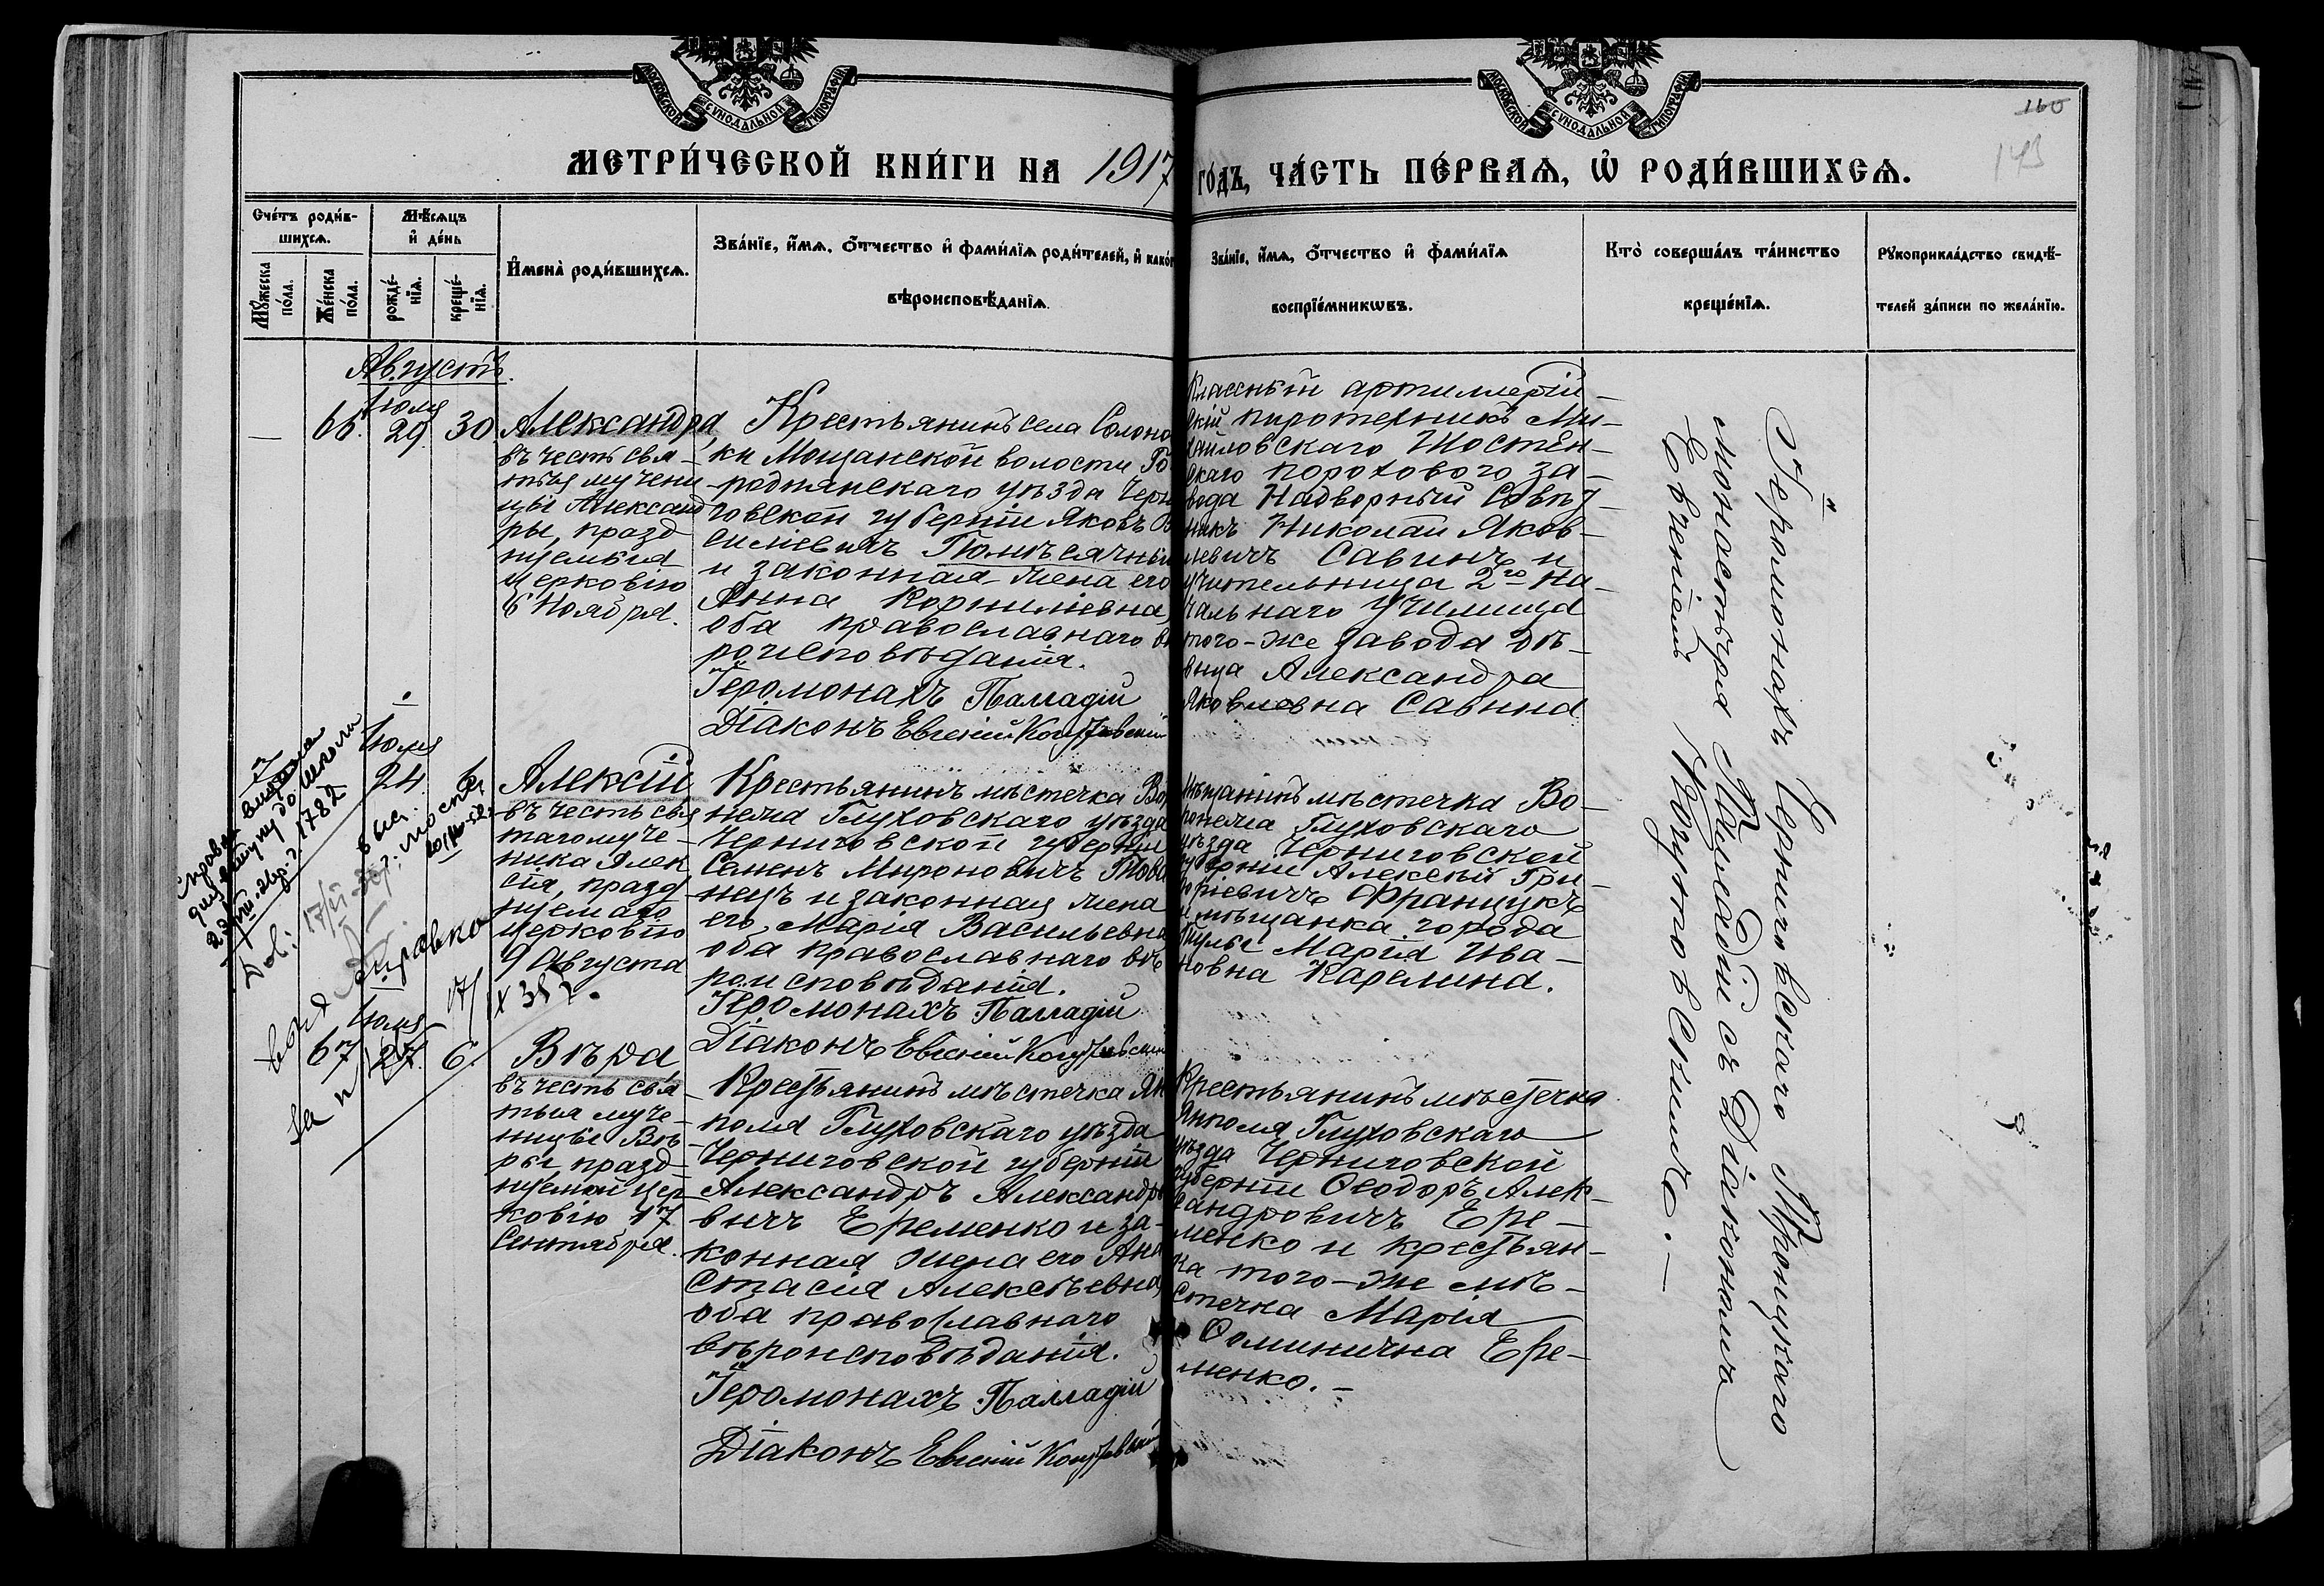 МОСКОВСКОЙ СѴНОДАЛЬНОЙ ТИПОГРАФІИ
МОСКОВСКОЙ СѴНОДАЛЬНОЙ ТИПОГРАФІИ
160
143
МЕТРИ́ЧЕСКОЙ КНИ́ГИ НА 1917 ГО́ДЪ, ЧА́СТЬ ПЕ́РВАѦ, Ѡ҆ РОДИ́ВШИХСѦ.
Сче́тъ роди́в-
шихсѧ.
Мꙋ́жеска по́ла.
Же́нска по́ла.
Мѣ́сѧцъ
и҆ де́нь
рожде́-
нїѧ.
креще́-
нїѧ.
И҆мена̀ роди́вшихсѧ.
Зва́нїе, и҆́мѧ, ѻ҆́тчество и҆ фами́лїѧ роди́телей, и҆ како́г
вѣроисповѣ́данїѧ.
Зва́нїе, и҆́мѧ, ѻ҆́тчество и҆ фами́лїѧ
воспрїе́мникѡвъ.
Кто̀ соверша́лъ та́инство
креще́нїѧ.
Рꙋкоприкла́дство свидѣ́-
телей за́писи по жела́нїю.
Августъ.
Іюля
— 66. 29. 30
Александра
въ честь свя-
тыя мучени-
цы Александ
ры, празд
нуемыя
Церковію
6 Ноября.
Крестьянинъ села Солоно
ки Мощанской волости Го
роднянскаго уѣзда Черни
говской губерніи Яковъ Ва
силіевичъ
и законная жена его
Анна Корниліевна,
оба православнаго вѣ
роисповѣданія.
Іеромонахъ Палладій
Діаконъ Евгеній
Классный артиллерій-
скій пиротехникъ Ми-
хайловскаго Шостен-
скаго порохового за-
вода Надворный Совѣт-
никъ Николай Яков-
левичъ Савинъ и
учительница 2го на-
чальнаго училища
того-же завода дѣ-
вица Александра
Яковлевна Савина
Іюля
24.
Алексій
въ честь свя
тагомуче-
ника Алек
сія, празд
нуемаго
Церковію
9 Августа
Крестьянинъ мѣстечка Во
нежа Глуховскаго уѣзда
Черниговской губерніи
Семенъ Мироновичъ
и законная жена
его Марія Васильевна
оба православнаго вѣ
роисповѣданія.
Іеромонахъ Палладій
Діаконъ Евгеній
Мѣщанинъ мѣстечка Во-
ронежа Глуховскаго
уѣзда Черниговской
губерніи Алексѣй Гри-
горьевичъ Францукъ
и мѣщанка города
Тулы Марія Ива-
новна Карелина.
1782
справка
Іюля
67 27. 6.
Вѣра
въ честь свя
тыя муче-
ницы Вѣ
ры, празд-
нуемой Цер
ковію 17
Сентября.
Крестьянинъ мѣстечка Ян
поля Глуховскаго уѣзда
Черниговской губерніи
Александръ Александро
вичъ Еременко и за-
конная жена его Ана
стасія Алексѣевна,
оба православнаго
вѣроисповѣданія.
Іеромонахъ Палладій
Діаконъ Евгеній
Крестьянинъ мѣстечка
Янполя Глуховскаго
уѣзда Черниговской
губерніи Ѳеодоръ Алек-
сандровичъ Ере-
менко и крестьян-
ка того-же мѣ-
стечка Марія
Ѳоминична Ере-
менко. —
Іеромонахъ Черниговскаго Троицкаго
монастыря Палладій съ Діакономъ
Евгеніемъ